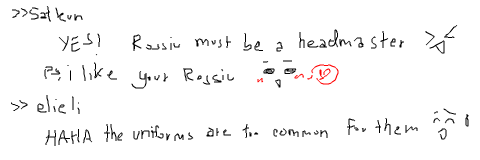 >>Satkun
YES! Rossiu must be a headmaster
Ps, i like your Rossiu
>> elieli
HAHA the uniforms are too common for them